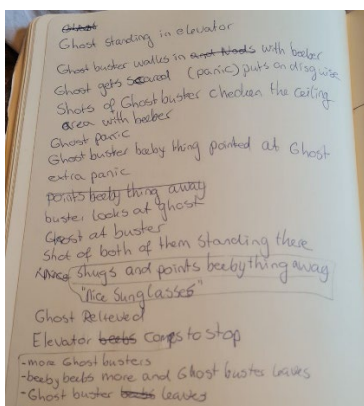 Ghost standing in elevator
Ghost buster walks in and Nods with beeber
Ghost gets scared (panic) puts on disgwise
Shots of Ghost buster checken the ceiling
area with beeber
Ghost panic
Ghost buster beeby thing pointed at Ghost
extra panic
points beeby thing away
buster looks at ghost
Ghost at buster
Shot of both of them standing there
shugs and points beeby thing away
"Nice Sunglasses"
Ghost Relieved
Elevator comes to stop
-more Ghost busters
-beeby beebs more and Ghost buster leaves
-Ghost buster leaves